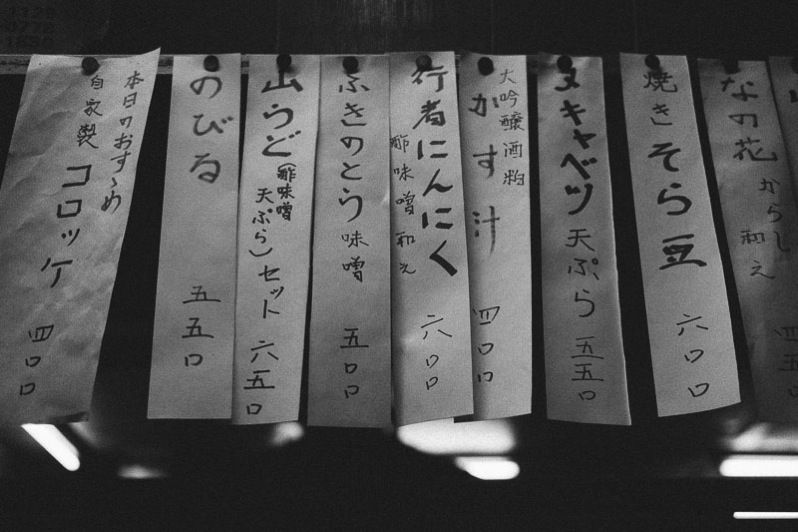 本日のおすゝめ
自家製
コロッケ
四〇〇
のびる
五五〇
山うど
(酢味噌
天ぷら)セット
六五〇
ふきのとう味噌
五〇〇
行者にんにく
酢味噌和え
六〇〇
大吟醸酒粕
かす汁
四〇〇
キャベツ天ぷら
五五〇
焼きそら豆
六〇〇
なの花
からし
和え
四五〇